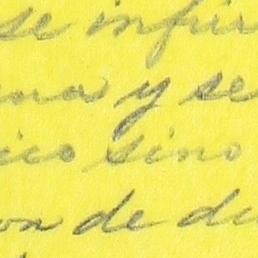 se infir
ma y se
ico sino
on de di